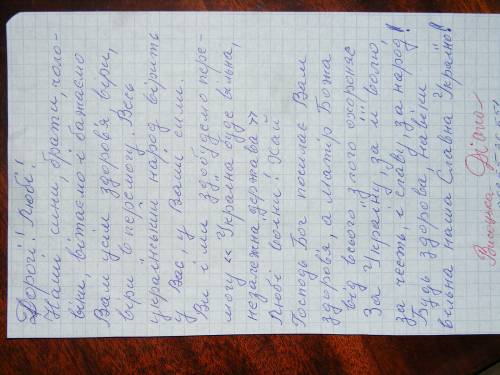 Дорогі! Любі!
Наші сини, брати, чоло-
віки, вітаємо і бажаємо
Вам усім здоров'я віри,
віри в перемогу. Весь
український народ вірить
у Вас, у Ваші сили.
Ви і ми здобудемо пере-
могу «Україна буде вільна,
незалежна держава»
Любі воїни! Хай
Господь Бог посилає Вам
здоров'я, а Матір Божа
від всього злого охороняє
За Україну, за її волю,
за честь, і славу, за народ!
Будь здорова, навіки
вільна наша Славна Україно!
Діана